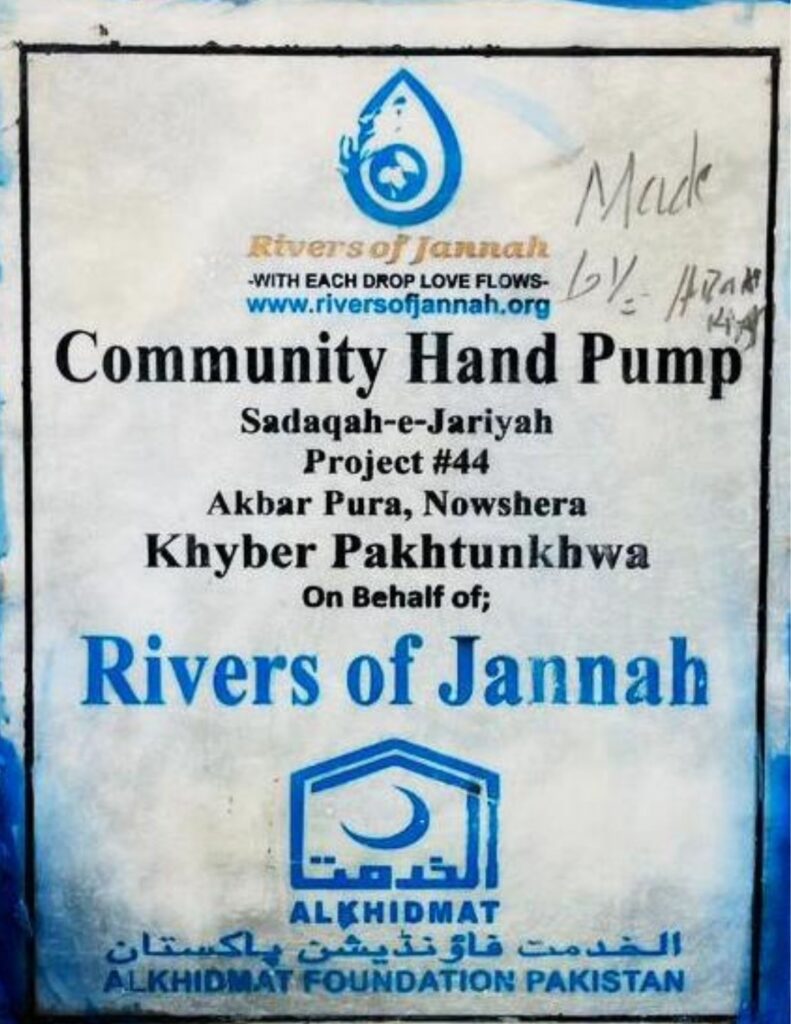 Rivers of Jannah
-WITH EACH DROP LOVE FLOWS-
www.riversofjannah.org
Made
by:-
Community Hand Pump
Sadaqah-e-Jariyah
Project #44
Akbar Pura, Nowshera
Khyber Pakhtunkhwa
On Behalf of;
Rivers of Jannah
الخدمت
ALKHIDMAT
الخدمت فاؤنڈیشن پاکستان
ALKHIDMAT FOUNDATION PAKISTAN